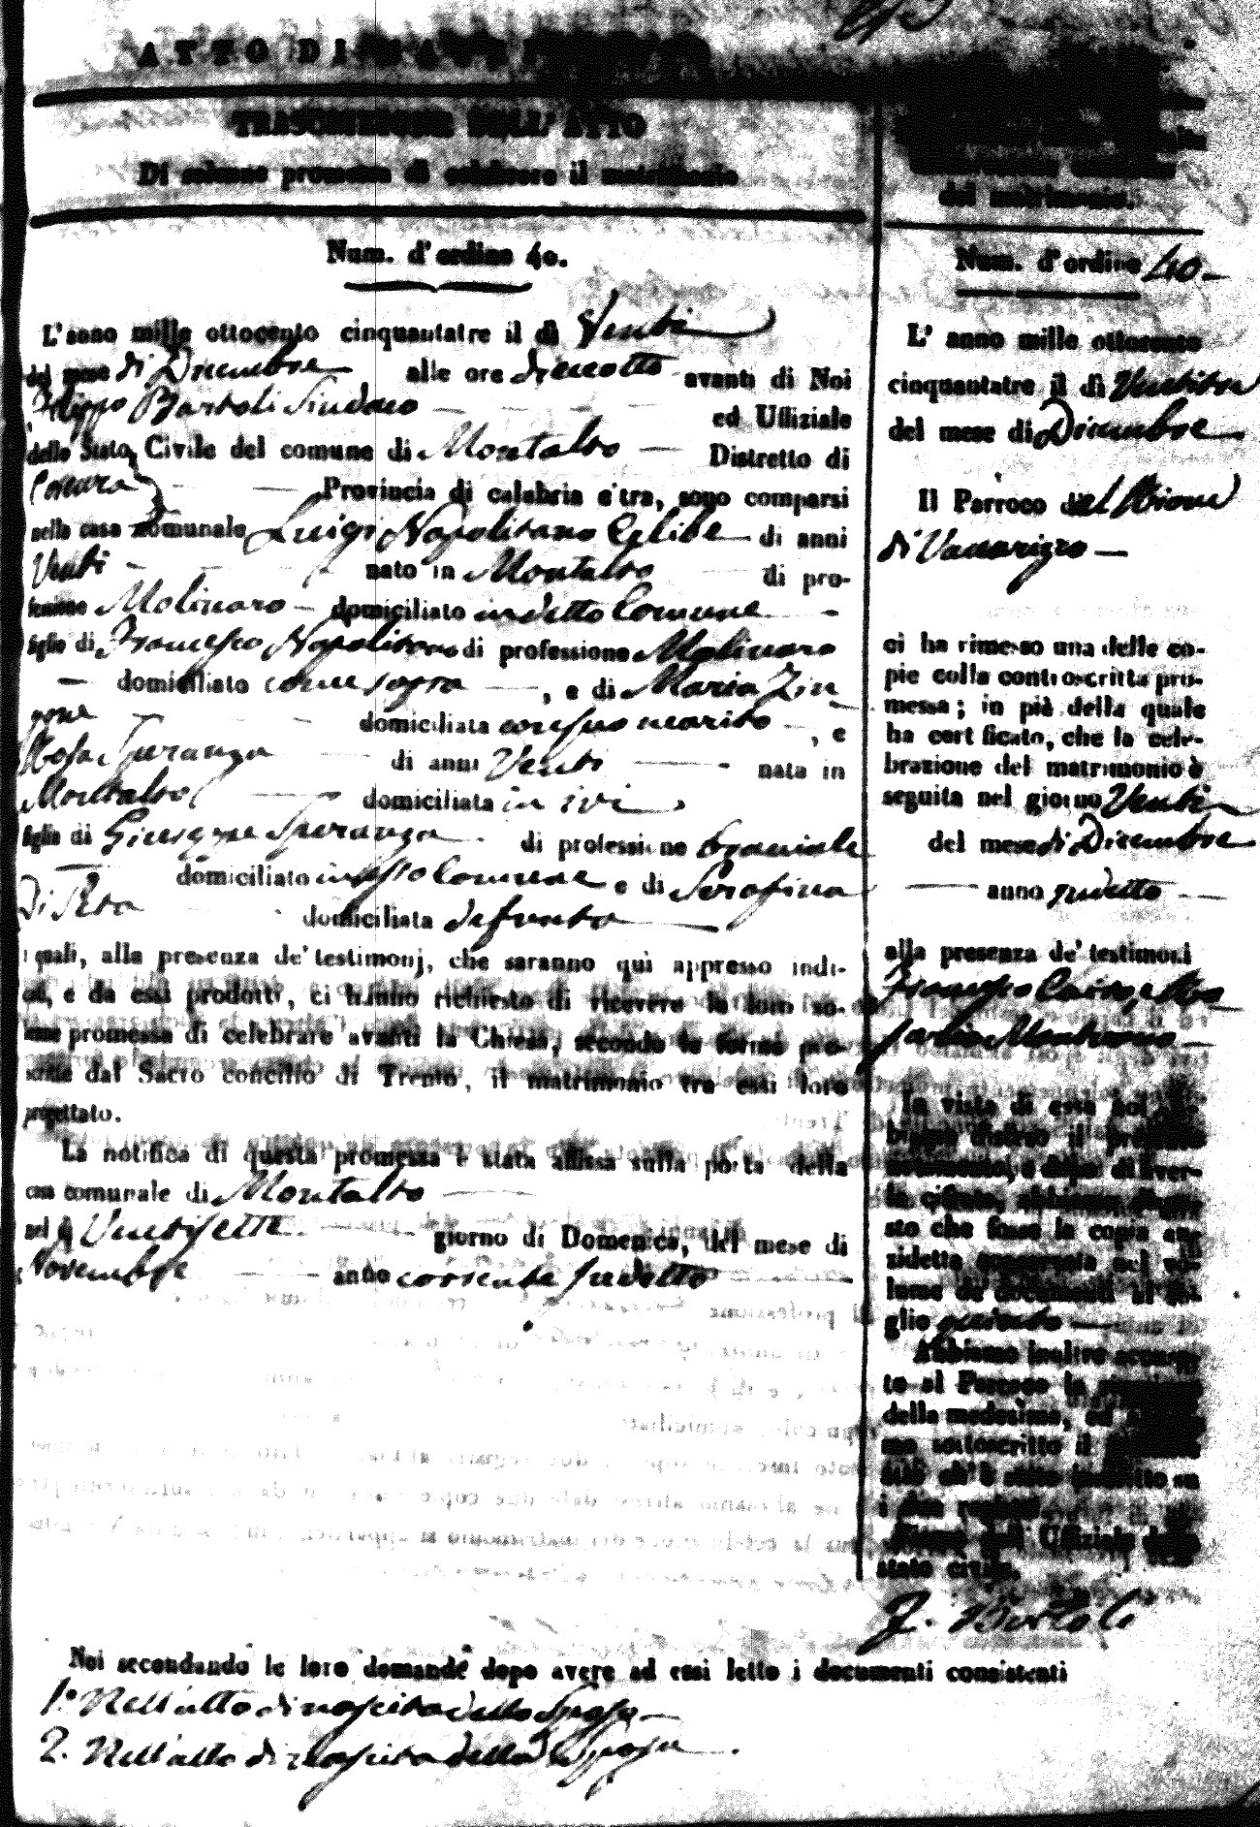 ATTO DI
TRASCRIZIONE DELL' ATTO
Di solenne promessa di celebrare il matrimonio
Num. d'ordine 40.
L'anno mille ottocento cinquantatre il dì Venti
del mese di Dicembre alle ore dieciotto avanti di Noi
Filippo Bartoli Sindaco ed Uffiziale
dello Stato Civile del comune di Montalto Distretto di
Cosenza Provincia di calabria citra, sono comparsi
nella casa comunale Luigi Napolitano Celibe di anni
Venti nato in Montalto di pro-
fessione Molinaro domiciliato in detto Comune
figlio di Francesco Napolitano di professione Molinaro
domiciliato come sopra, e di Maria Zin
gone domiciliata con suo marito, e
Rosa Speranza di anni Venti nata in
Montalto domiciliata in ivi
figlia di Giuseppe Speranza di professione Bracciale
domiciliato in esso Comune e di Serafina
Di domiciliata defunta
i quali, alla presenza de' testimonj, che saranno quì appresso indi-
cati, e da essi prodotti, ci hanno richiesto di ricevere la loro so-
lenne promessa di celebrare avanti la Chiesa, secondo le forme pre-
scritte dal Sacro concilio di Trento, il matrimonio tra essi loro
progettato.
La notifica di questa promessa è stata affissa sulla porta della
casa comunale di Montalto
nel dì Ventisette giorno di Domenica, del mese di
Novembre anno corrente sudetto
del matrimonio.
Num. d'ordine 40
L' anno mille ottocento
cinquantatre il dì Ventitre
del mese di Dicembre
Il Parroco del Rione
di Vaccarizzo
ci ha rimesso una delle co-
pie colla controscritta pro-
messa; in piè della quale
ha certificato, che la cele-
brazione del matrimonio è
seguita nel giorno Venti
del mese di Dicembre
anno sudetto
alla presenza de' testimoni
Francesco
In vista di essa noi ab-
biamo disteso il presente
notamento, e dopo di aver-
la cifrata, abbiamo dispo-
sto che fosse la copia an-
zidetta conservata nel vo-
lume de' documenti al fo-
glio
Abbiamo inoltre accusa-
to al Parroco la
della medesima, ed
mo sottoscritto il
atto ch' è stato inscritto su
i due registri
Uffiziale dello
stato civile.
F. Bartoli
Noi secondando le loro domande dopo avere ad essi letto i documenti consistenti
1.° Nell'atto di nascita dello Sposo
2. Nell'atto di nascita della Sposa